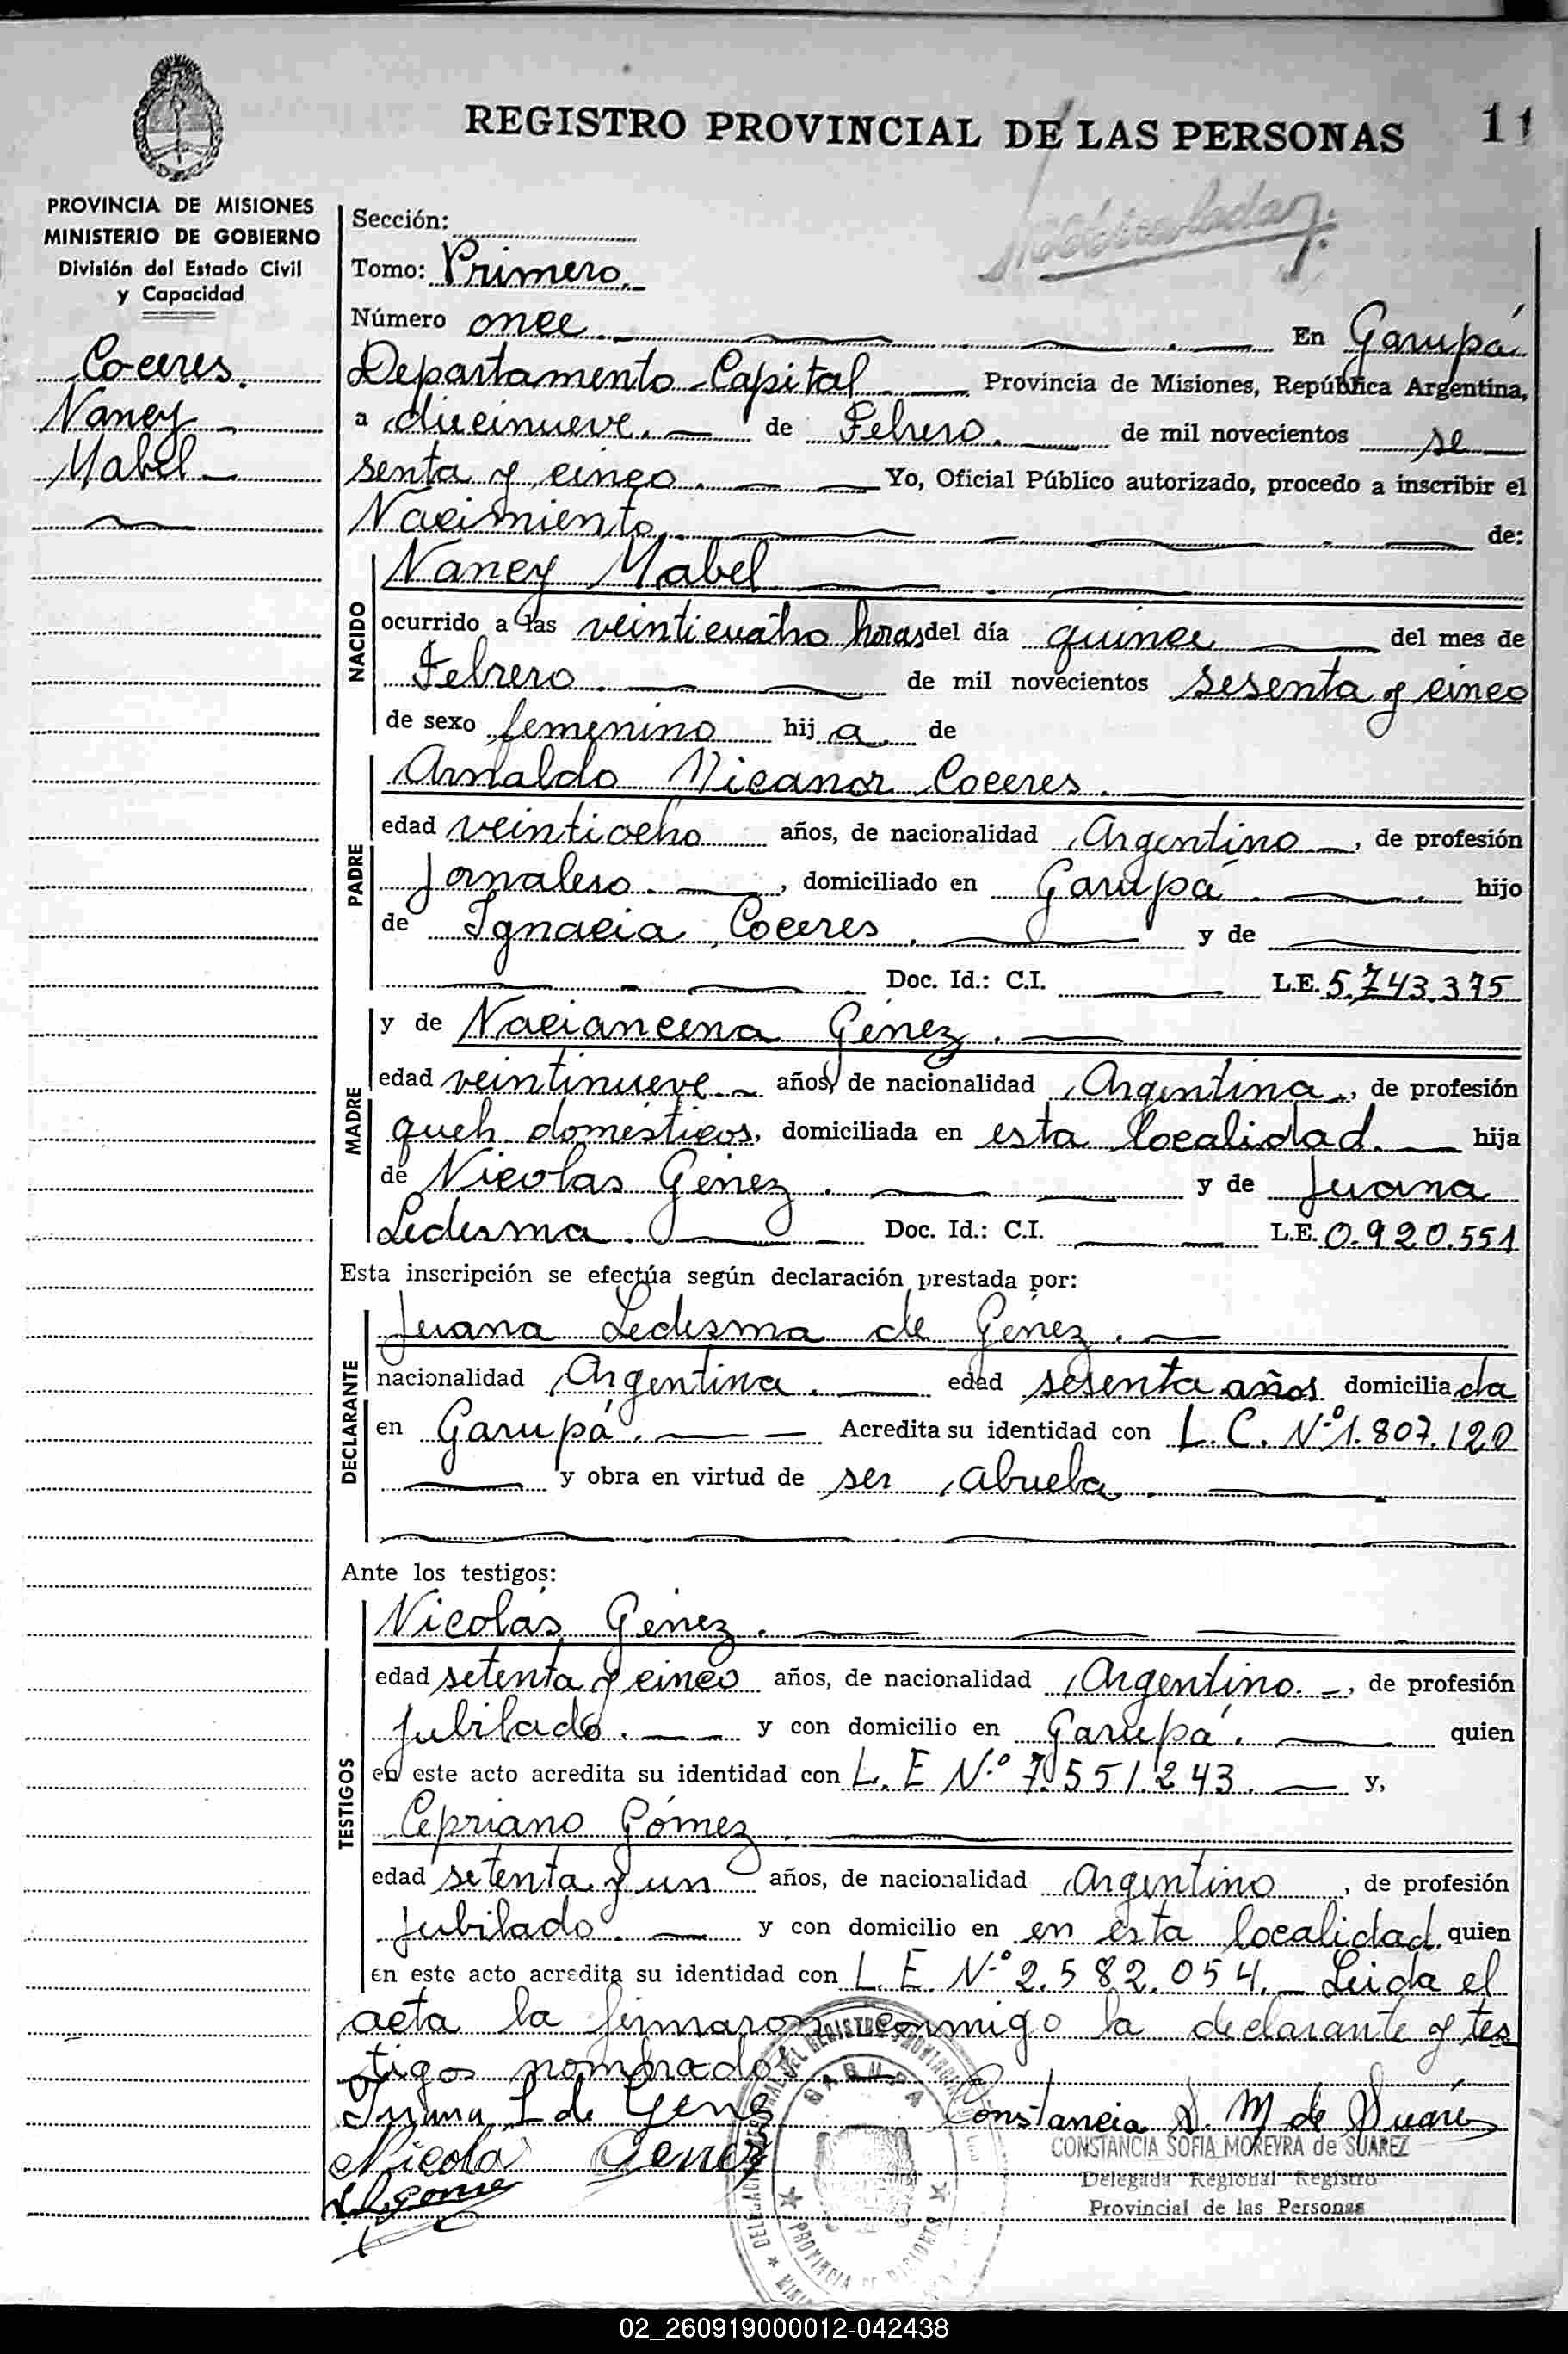 REGISTRO PROVINCIAL DE LAS PERSONAS 11
PROVINCIA DE MISIONES
MINISTERIO DE GOBIERNO
División del Estado Civil
y Capacidad
Coceres.
Nancy
Mabel
Sección:
Tomo: Primero.
Número once. En Garupá
Departamento Capital Provincia de Misiones, República Argentina,
a diecinueve. de Febrero. de mil novecientos se
senta y cinco. Yo, Oficial Público autorizado, procedo a inscribir el
Nacimiento de:
NACIDO
Nancy Mabel
ocurrido a las veinticuatro horas del día quince del mes de
Febrero. de mil novecientos sesenta y cinco
de sexo femenino hij a. de
PADRE
Arnaldo Nicanor Coceres.
edad veintiocho años, de nacionalidad Argentino, de profesión
Jornalero., domiciliado en Garupá. hijo
de Ignacia Coceres. y de
Doc. Id.: C.I. L.E. 5.743.375
MADRE
y de Naciancena Génez.
edad veintinueve. años, de nacionalidad Argentina., de profesión
queh. domésticos, domiciliada en esta localidad. hija
de Nicolas Génez. y de Juana
Ledesma. Doc. Id.: C.I. L.E. 0.920.551
Esta inscripción se efectúa según declaración prestada por:
DECLARANTE
Juana Ledesma de Génez.
nacionalidad Argentina. edad sesenta años domicilia da
en Garupá. Acredita su identidad con L.C. Nº 1.807.120
y obra en virtud de ser abuela.
Ante los testigos:
TESTIGOS
Nicolás Génez.
edad setenta y cinco años, de nacionalidad Argentino., de profesión
Jubilado. y con domicilio en Garupá. quien
en este acto acredita su identidad con L.E Nº 7.551.243. y,
Cipriano Gómez.
edad setenta y un años, de nacionalidad Argentino, de profesión
Jubilado. y con domicilio en en esta localidad. quien
en este acto acredita su identidad con L.E. Nº 2.582.054. Leida el
acta la firmaron conmigo la declarante y tes
tigos nombrados.
Juana L de Gene
Constancia S. M de Suaréz
Nicola Genez
CONSTANCIA SOFIA MOREYRA de SUAREZ
Delegada Regional Registro
Provincial de las Personas
GARUPA
PROVINCIA DE MISIONES
02_260919000012-042438